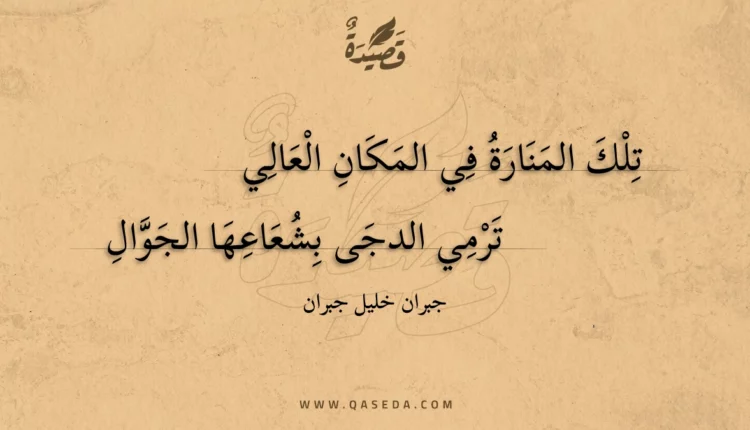 قَصِيدَةٌ
تِلْكَ المَنَارَةُ فِي المَكَانِ الْعَالِي
تَرْمِي الدجَى بِشُعَاعِهَا الجَوَّالِ
جبران خليل جبران
WWW.QASEDA.COM